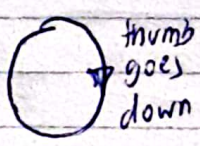 thumb
goes
down